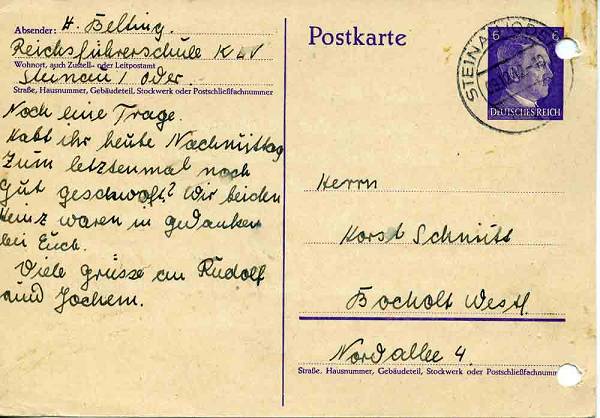 Absender: H. Helting.
Reichsführerschule KLV
Wohnort, auch Zustell- oder Leitpostamt
Steinau / Oder.
Straße, Hausnummer, Gebäudeteil, Stockwerk oder Postschließfachnummer
Noch eine Frage.
Habt ihr heute Nachmittag
Zum letztenmal noch
gut geschwoft? Wir beiden
Heinz waren in gedanken
bei Euch.
Viele grüsse an Rudolf
und Jochem.
Postkarte
6 6
STEINAU (ODER)
DEUTSCHES REICH
Herrn
Horst Schmitt
Bocholt Westf.
Nordallee 4.
Straße, Hausnummer, Gebäudeteil, Stockwerk oder Postschließfachnumm